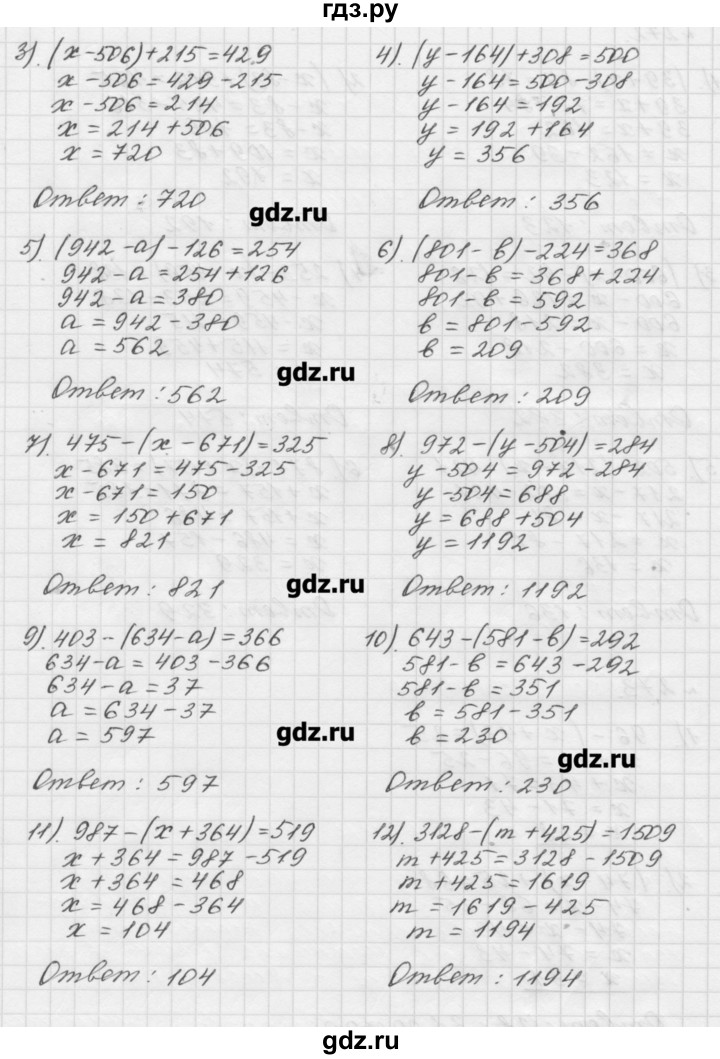 гдз.ру
3). (x-506)+215=429
x-506=429-215
x-506=214
x=214+506
x=720
Ответ: 720
4). (y-164)+308=500
y-164=500-308
y-164=192
y=192+164
y=356
Ответ: 356
gdz.ru
5). (942-a)-126=254
942-a=254+126
942-a=380
a=942-380
a=562
Ответ: 562
6). (801-в)-224=368
801-в=368+224
801-в=592
в=801-592
в=209
Ответ: 209
gdz.ru
7). 475-(x-671)=325
x-671=475-325
x-671=150
x=150+671
x=821
Ответ: 821
8). 972-(y-504)=284
y-504=972-284
y-504=688
y=688+504
y=1192
Ответ: 1192
gdz.ru
9). 403-(634-a)=366
634-a=403-366
634-a=37
a=634-37
a=597
Ответ: 597
10). 643-(581-в)=292
581-в=643-292
581-в=351
в=581-351
в=230
Ответ: 230
gdz.ru
gdz.ru
11). 987-(x+364)=519
x+364=987-519
x+364=468
x=468-364
x=104
Ответ: 104
12). 3128-(m+425)=1509
m+425=3128-1509
m+425=1619
m=1619-425
m=1194
Ответ: 1194
gdz.ru